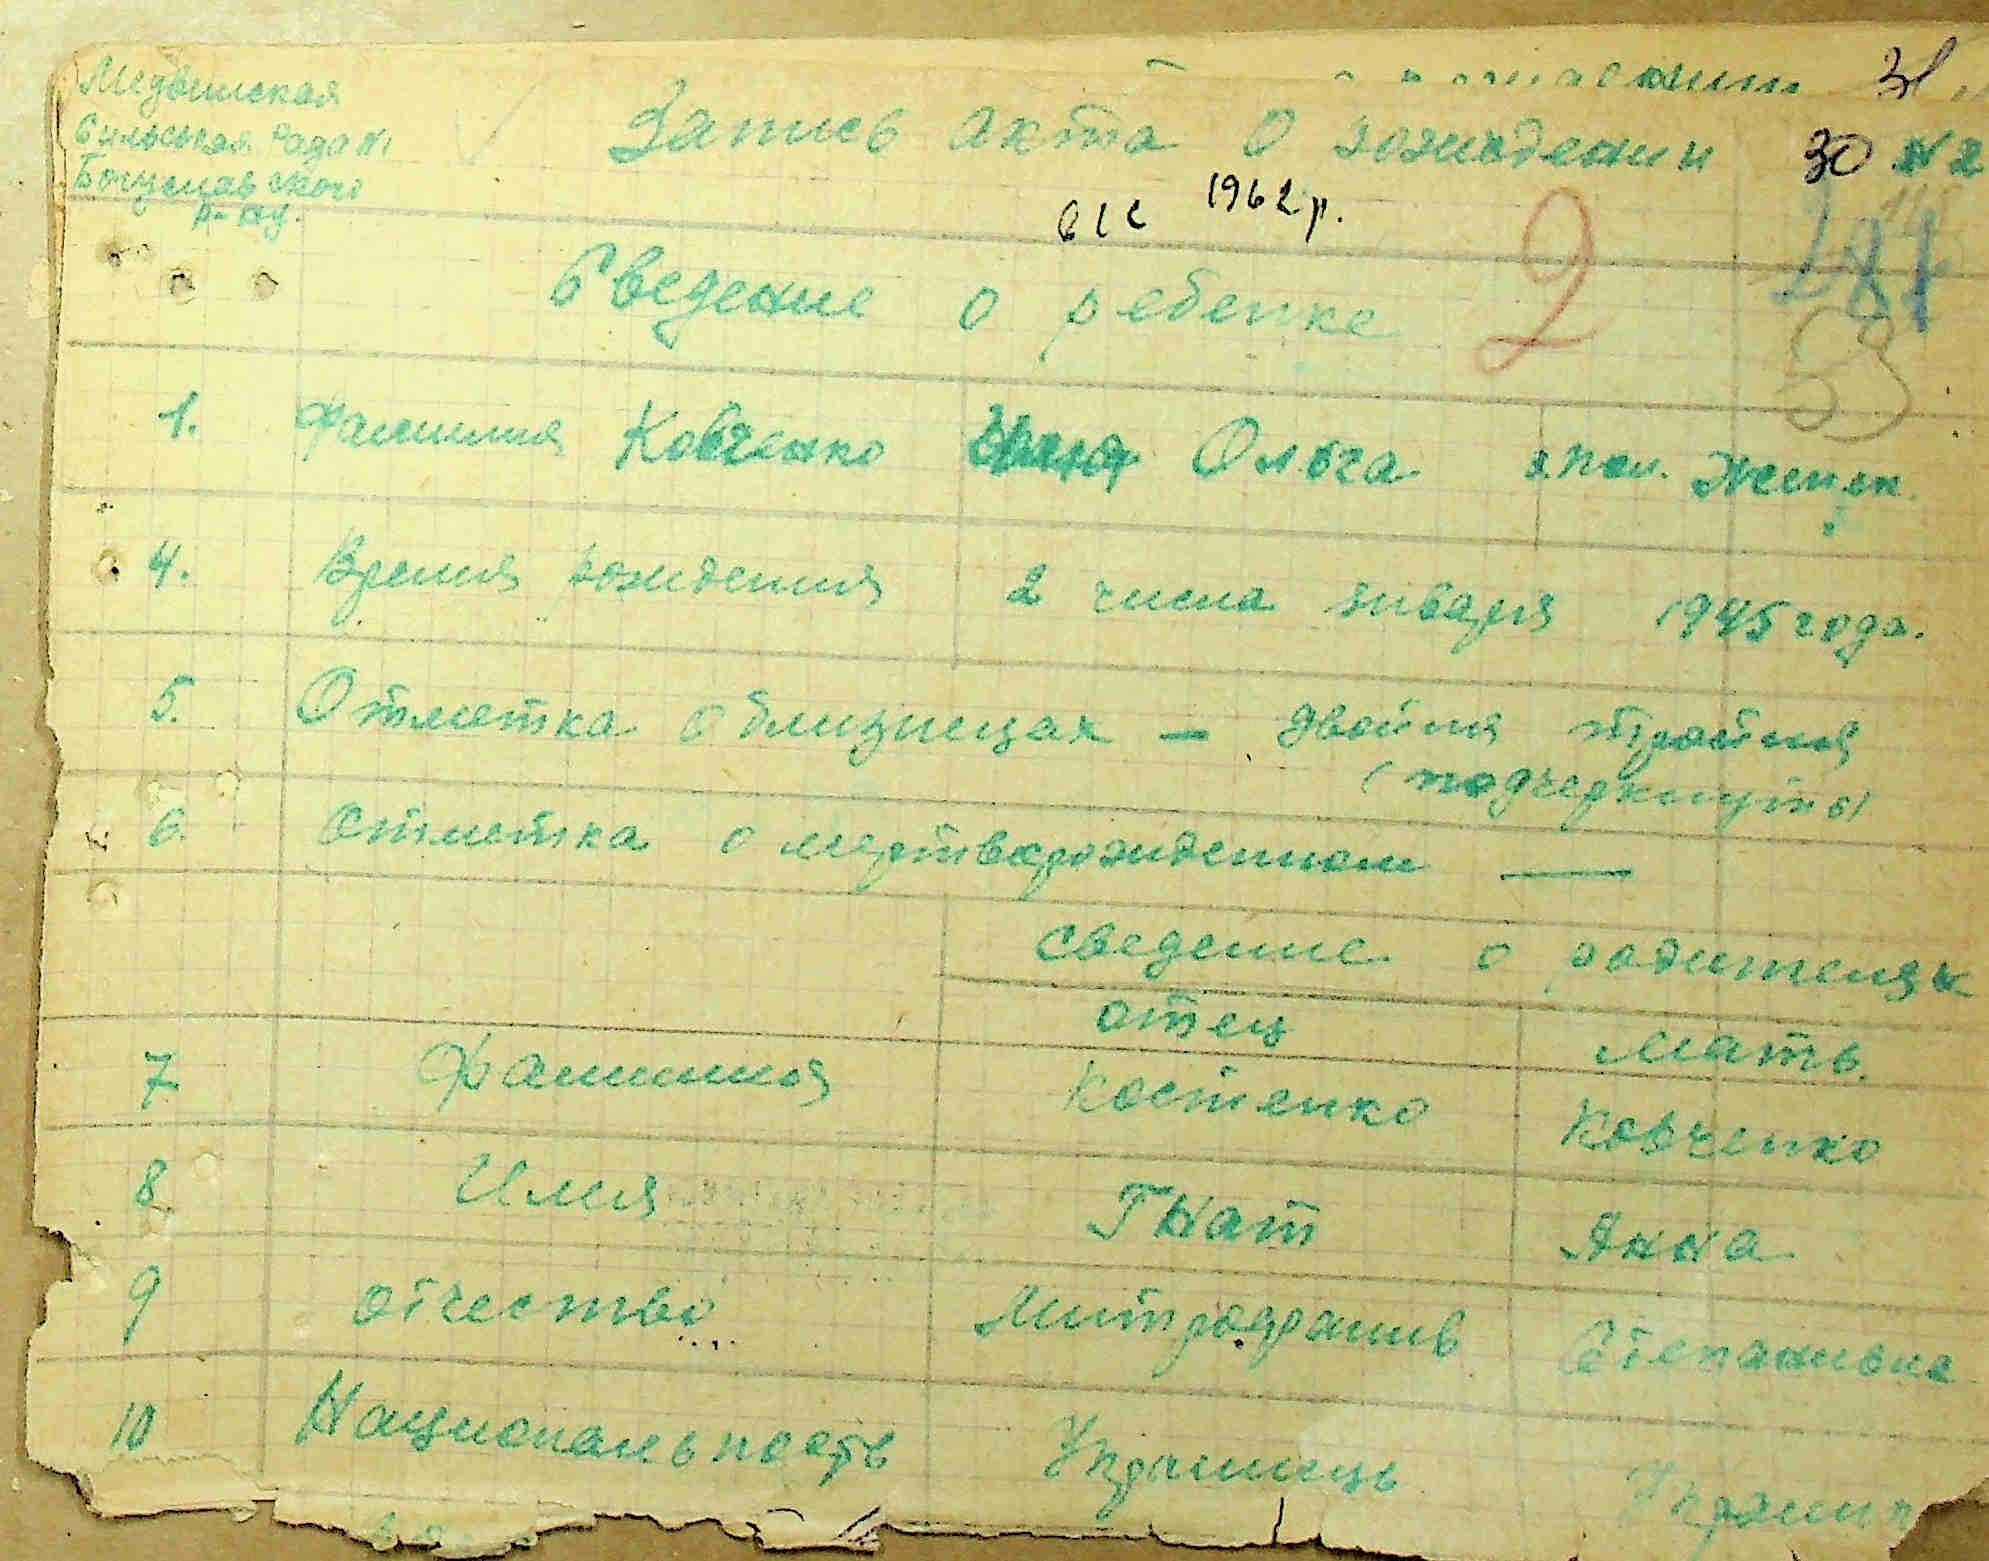 Медвинская
Сильская Рада №1
Богуславского
р-ну.
31
Запись акта о рождении 30 № 2
1962 р.
Сведение о ребенке 2
53
1. Фамилия Ковченко Ольга 3. пол. Женск.
4. Время рождения 2 числа января 1945 года.
5. Отметка о близнецах — двойня тройня
(подчеркнуто)
6. Отметка о мертворожденном —
Сведение о родителях
отец мать.
7 Фамилия Костенко Ковченко
8 Имя Гнат Анна
9 отчество Митрофанив Степанивна
10 Национальность Украинець Украин